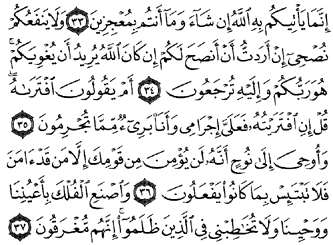 إِنَّمَا يَأْتِيكُم بِهِ ٱللَّهُ إِن شَآءَ وَمَآ أَنتُم بِمُعْجِزِينَ ٣٣ وَلَا يَنفَعُكُمْ
نُصْحِىٓ إِنْ أَرَدتُّ أَنْ أَنصَحَ لَكُمْ إِن كَانَ ٱللَّهُ يُرِيدُ أَن يُغْوِيَكُمْ ۚ
هُوَ رَبُّكُمْ وَإِلَيْهِ تُرْجَعُونَ ٣٤ أَمْ يَقُولُونَ ٱفْتَرَىٰهُ ۖ
قُلْ إِنِ ٱفْتَرَيْتُهُۥ فَعَلَىَّ إِجْرَامِى وَأَنَا۠ بَرِىٓءٌ مِّمَّا تُجْرِمُونَ ٣٥
وَأُوحِىَ إِلَىٰ نُوحٍ أَنَّهُۥ لَن يُؤْمِنَ مِن قَوْمِكَ إِلَّا مَن قَدْ ءَامَنَ
فَلَا تَبْتَئِسْ بِمَا كَانُوا۟ يَفْعَلُونَ ٣٦ وَٱصْنَعِ ٱلْفُلْكَ بِأَعْيُنِنَا
وَوَحْيِنَا وَلَا تُخَٰطِبْنِى فِى ٱلَّذِينَ ظَلَمُوٓا۟ ۚ إِنَّهُم مُّغْرَقُونَ ٣٧